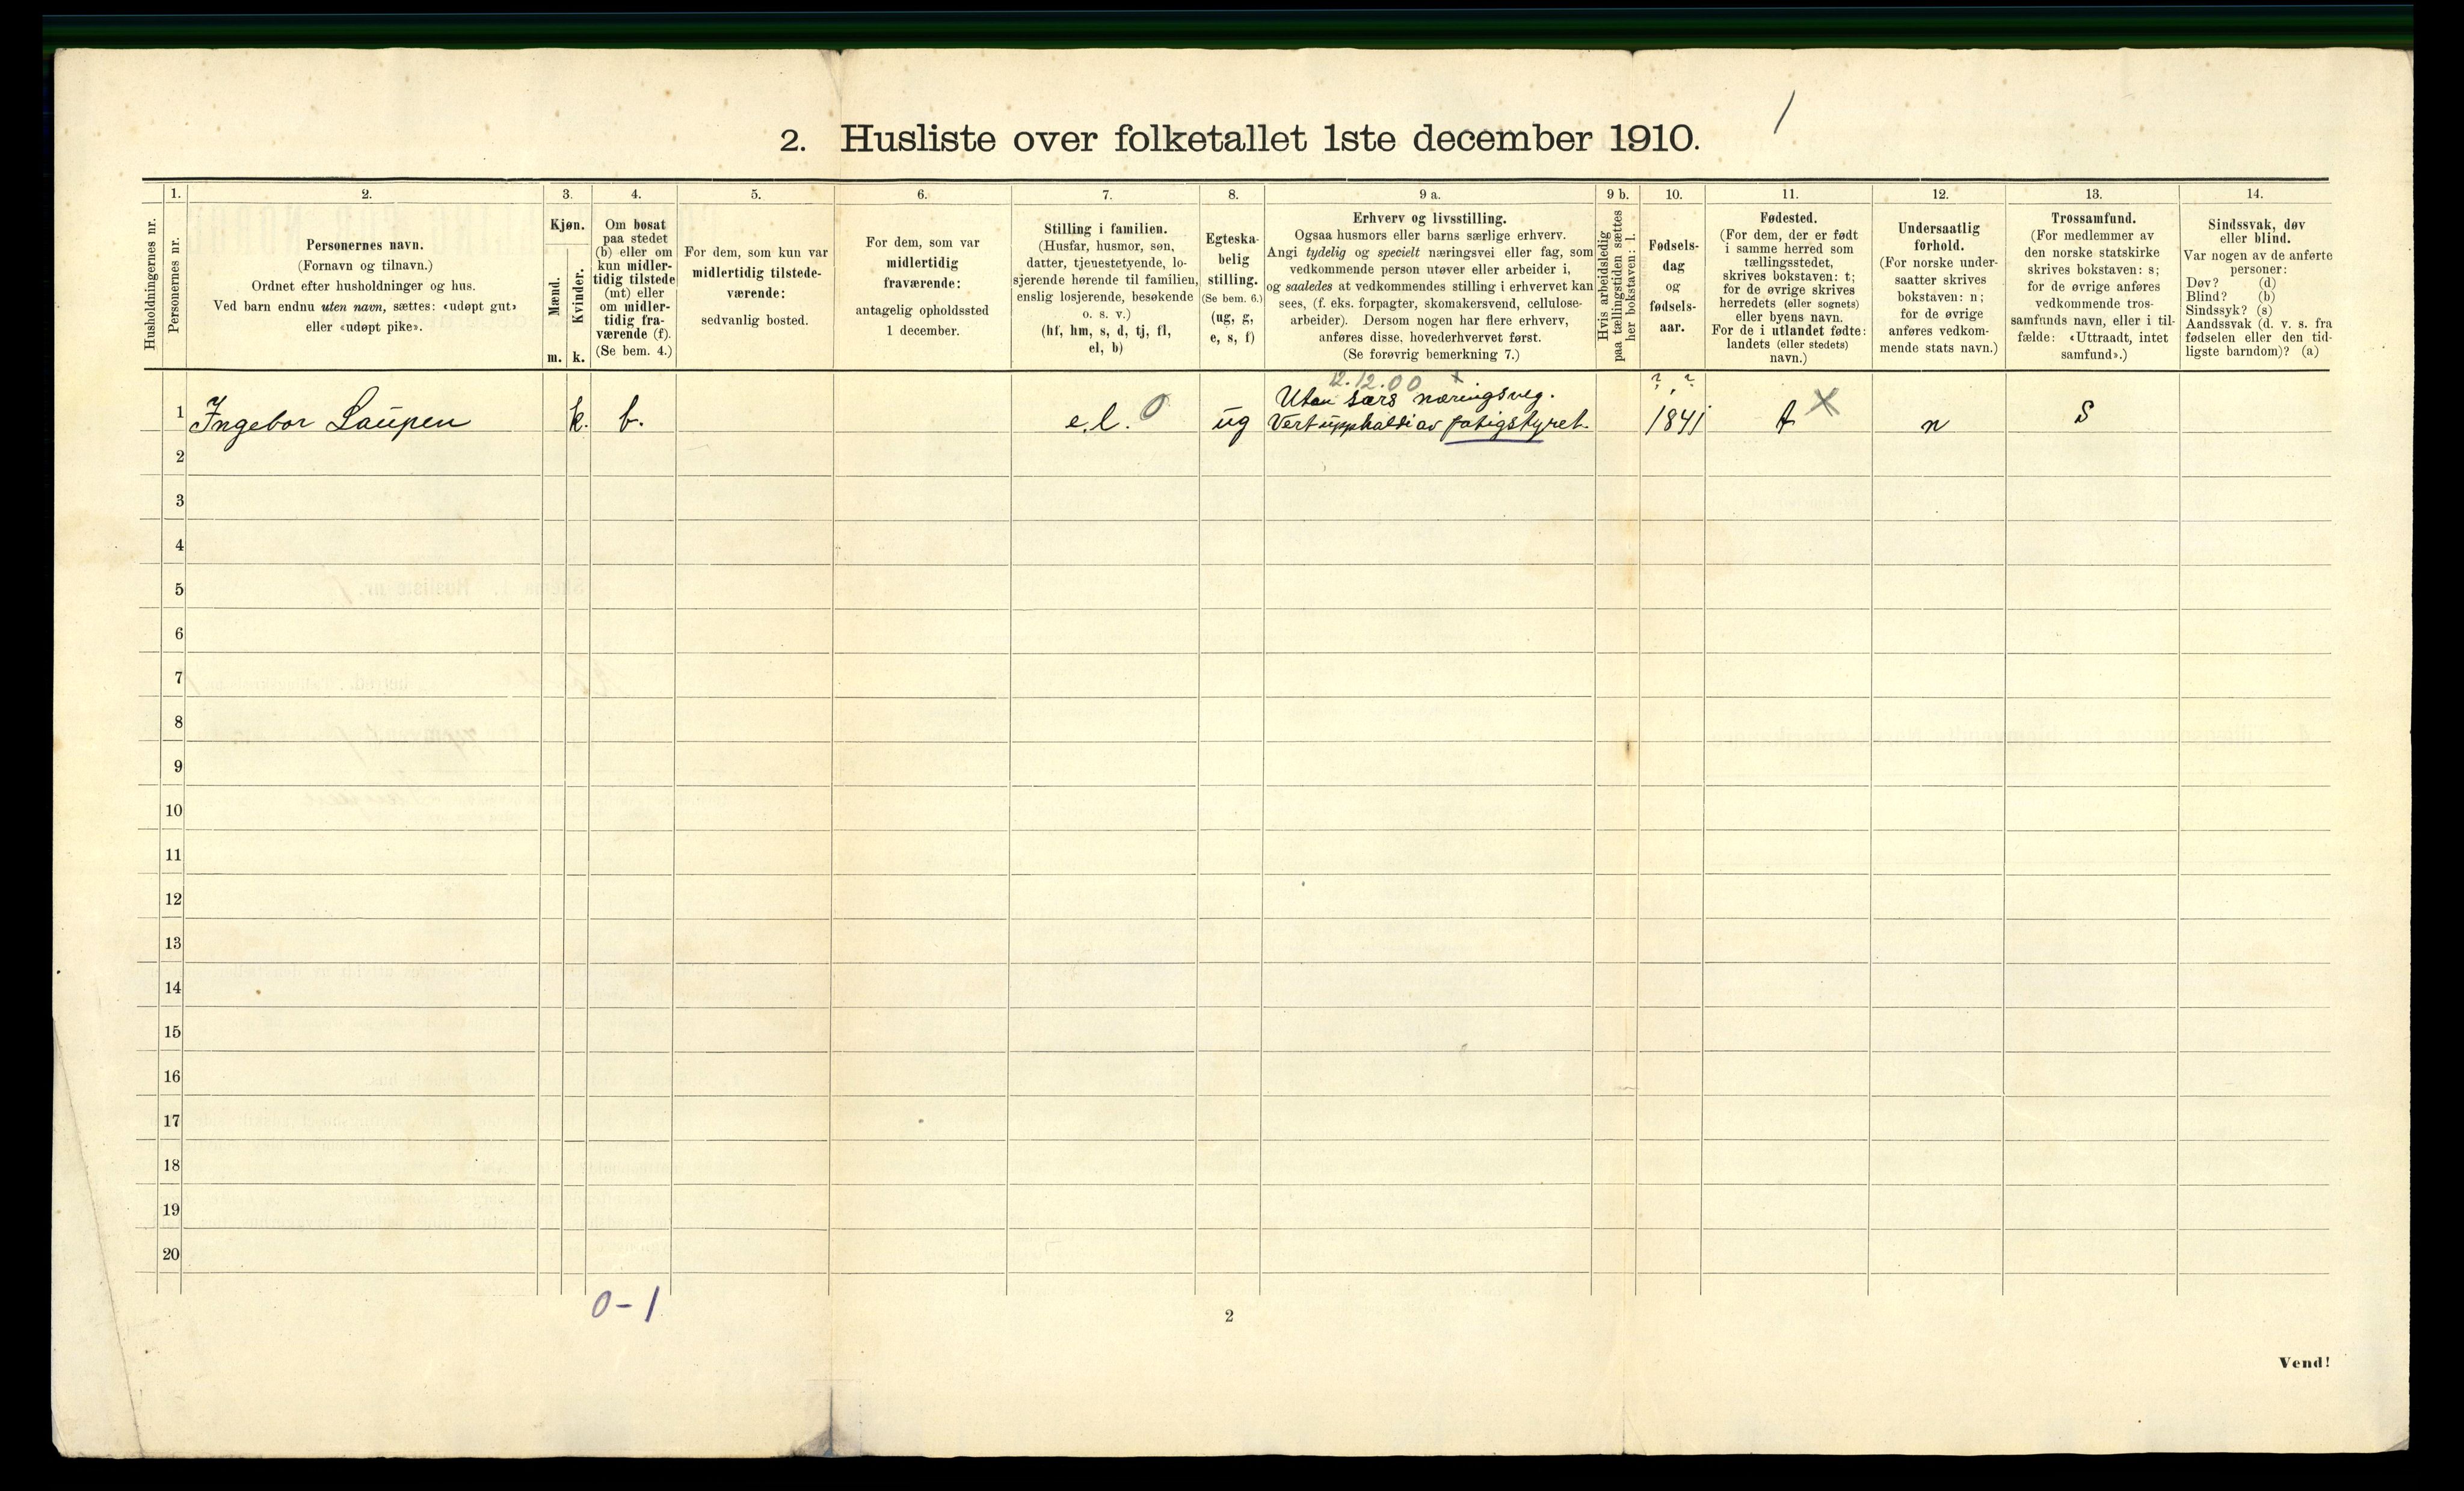 /
2. Husliste over folketallet 1ste december 1910.
Husholdningernes nr.
1.
Personernes nr.
2.
Personernes navn.
(Fornavn og tilnavn.)
Ordnet efter husholdninger og hus.
Ved barn endnu uten navn, sættes: «udøpt gut»
eller «udøpt pike».
3.
Kjøn.
Mænd.
Kvinder.
m. k.
4.
Om bosat
paa stedet
(b) eller om
kun midler-
tidig tilstede
(mt) eller
om midler-
tidig fra-
værende (f).
(Se bem. 4.)
5.
For dem, som kun var
midlertidig tilstede-
værende:
sedvanlig bosted.
6.
For dem, som var
midlertidig
fraværende:
antagelig opholdssted
1 december.
7.
Stilling i familien.
(Husfar, husmor, søn,
datter, tjenestetyende, lo-
sjerende hørende til familien,
enslig losjerende, besøkende
o. s. v.)
(hf, hm, s, d, tj, fl,
el, b)
8.
Egteska-
belig
stilling.
(Se bem. 6.)
(ug, g,
e, s, f)
9 a.
Erhverv og livsstilling.
Ogsaa husmors eller barns særlige erhverv.
Angi tydelig og specielt næringsvei eller fag, som
vedkommende person utøver eller arbeider i,
og saaledes at vedkommendes stilling i erhvervet kan
sees, (f. eks. forpagter, skomakersvend, cellulose-
arbeider). Dersom nogen har flere erhverv,
anføres disse, hovederhvervet først.
(Se forøvrig bemerkning 7.)
9 b.
Hvis arbeidsledig
paa tællingstiden sættes
her bokstaven: l.
10.
Fødsels-
dag
og
fødsels-
aar.
11.
Fødested.
(For dem, der er født
i samme herred som
tællingsstedet,
skrives bokstaven: t;
for de øvrige skrives
herredets (eller sognets)
eller byens navn.
For de i utlandet fødte:
landets (eller stedets)
navn.)
12.
Undersaatlig
forhold.
(For norske under-
saatter skrives
bokstaven: n;
for de øvrige
anføres vedkom-
mende stats navn.)
13.
Trossamfund.
(For medlemmer av
den norske statskirke
skrives bokstaven: s;
for de øvrige anføres
vedkommende tros-
samfunds navn, eller i til-
fælde: «Uttraadt, intet
samfund».)
14.
Sindssvak, døv
eller blind.
Var nogen av de anførte
personer:
Døv? (d)
Blind? (b)
Sindssyk? (s)
Aandssvak (d. v. s. fra
fødselen eller den tid-
ligste barndom)? (a)
12.12.00 x ? . ?
Utan særs næringsveg.
1 Ingebor Laupen k. b. e.l. 0 ug Vert upphaldi av fatigstyret. 1841 t X n S
2
3
4
5
6
7
8
9
10
11
12
13
14
15
16
17
18
19
20
0-1
2
Vend!